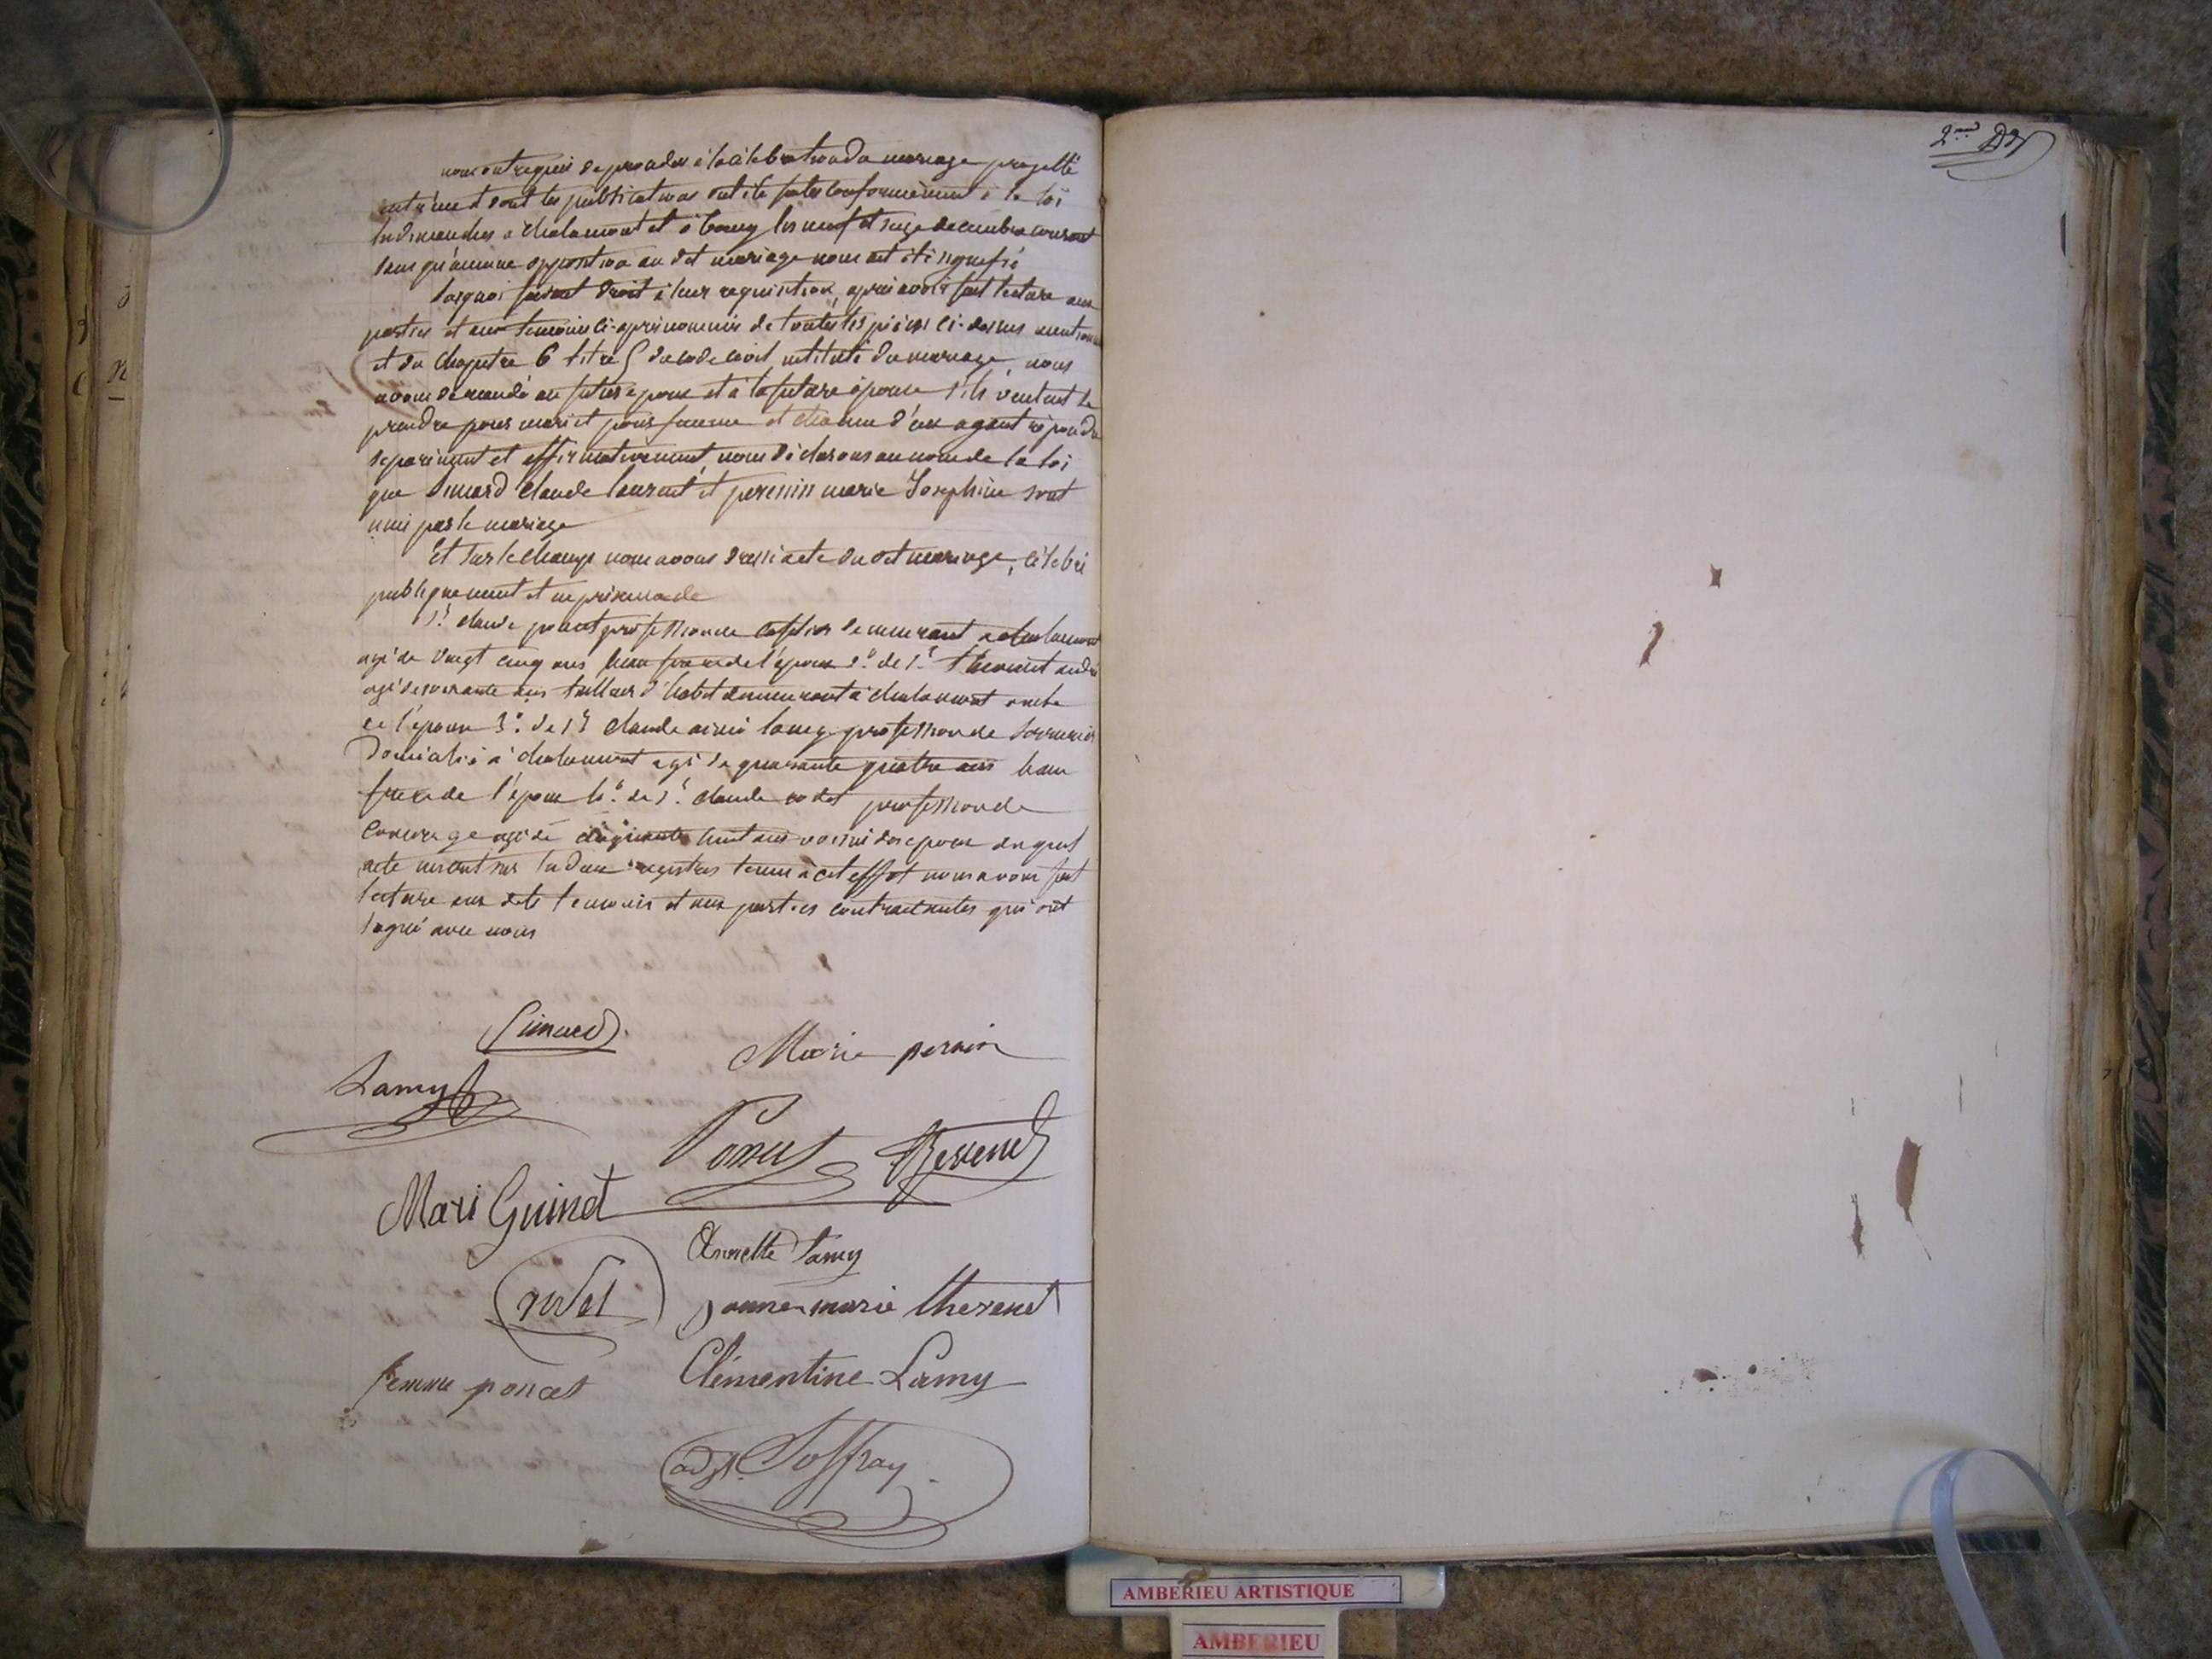 nous ont requis de proceder à la célébration du mariage projetté
entr'eux et dont les publications ont été faites conformément à la loi
les dimanches à chalamont et à bourg les neuf et seize decembre courant
sans qu'aucune opposition au dit mariage nous ait été signifié
faisant droit à leur requisition, après avoir fait lecture aux
parties et aux temoins ci-après nommés de toutes les pièces ci-dessus
et du chapitre 6 titre 5 du code civil intitulé du mariage, nous
avons demandé au futur epoux et à la future épouse s'ils veulent se
prendre pour mari et pour femme et chacun d'eux ayant répondu
séparément et affirmativement, nous déclarons au nom de la loi
que Simard Claude laurent et perrin marie Josephine sont
unis par le mariage
Et sur le champ nous avons dressé acte du dit mariage, célébré
publiquement et en présence de
1.° claude poncet profession de demeurant à chalamont
agé de vingt cinq ans beau frere de l'époux 2.° de s.r Thevenet andré
agé de soixante ans tailleur d'habit demeurant à chalamont oncle
de l'épouse 3.° de s.r Claude aimé lamy profession de serrurier
Domicilié à chalamont agé de quarante quatre ans beau
frere de l'époux 4.° de s.r claude rodet profession de
agé de cinquante huit ans voisin des epoux du quel
acte inscrit sur les deux registres tenus à cet effet nous avons fait
lecture aux dits temoins et aux parties contractantes qui ont
signé avec nous
Simard
Marie perrin
Lamy
Poncet Thevenet
Mari Guinet
Annette Lamy
rodet
Jeanne-marie thevenet
femme poncet
Clémentine Lamy
adjt. Joffray
2.me
AMBERIEU ARTISTIQUE
AMBERIEU